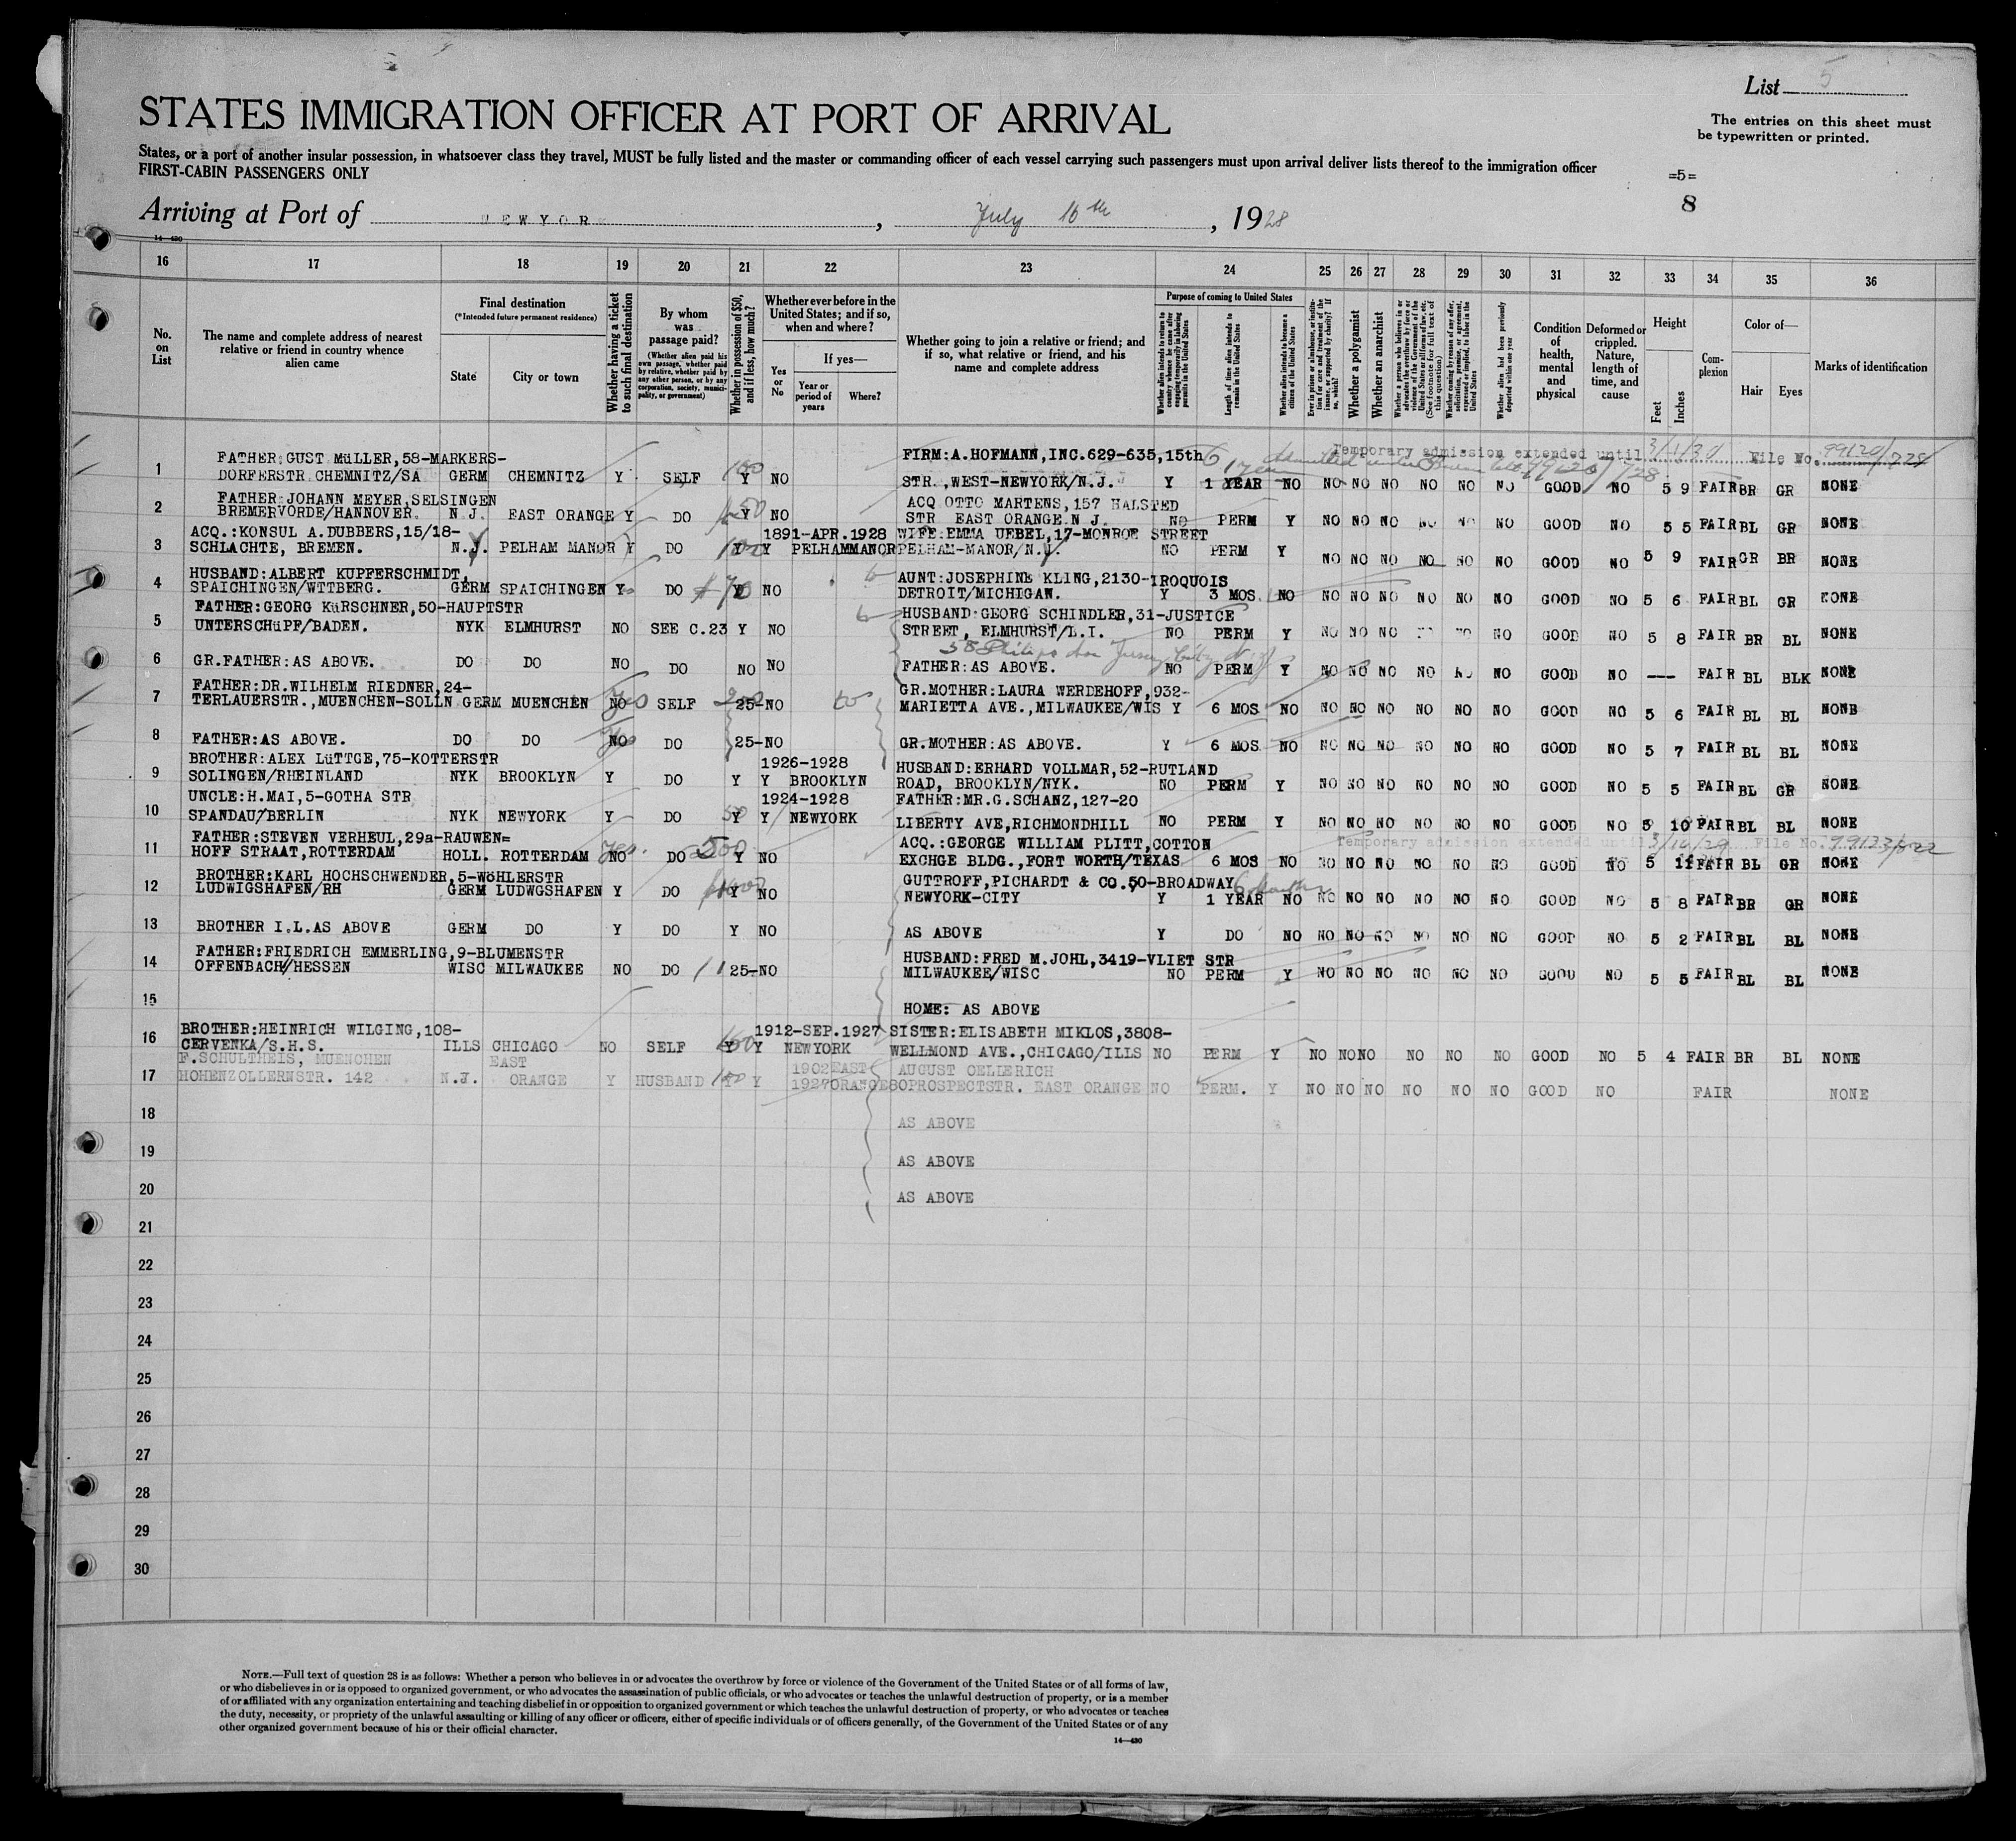 List 5
STATES IMMIGRATION OFFICER AT PORT OF ARRIVAL
The entries on this sheet must
be typewritten or printed.
States, or a port of another insular possession, in whatsoever class they travel, MUST be fully listed and the master or commanding officer of each vessel carrying such passengers must upon arrival deliver lists thereof to the immigration officer
FIRST-CABIN PASSENGERS ONLY
=5=
8
Arriving at Port of NEWYORK, July 16th, 1928
14—430
16 17 18 19 20 21 22 23 24 25 26 27 28 29 30 31 32 33 34 35 36
No. on List
The name and complete address of nearest relative or friend in country whence alien came
Final destination
(*Intended future permanent residence)
State
City or town
Whether having a ticket to such final destination
By whom was passage paid?
(Whether alien paid his own passage, whether paid by relative, whether paid by any other person, or by any corporation, society, municipality, or government)
Whether in possession of $50, and if less, how much?
Whether ever before in the United States; and if so, when and where?
Yes or No
If yes—
Year or period of years
Where?
Whether going to join a relative or friend; and if so, what relative or friend, and his name and complete address
Purpose of coming to United States
Whether alien intends to return to country whence he came after engaging temporarily in laboring pursuits in the United States
Length of time alien intends to remain in the United States
Whether alien intends to become a citizen of the United States
Ever in prison or almshouse, or institution for care and treatment of the insane, or supported by charity? If so, which?
Whether a polygamist
Whether an anarchist
Whether a person who believes in or advocates the overthrow by force or violence of the Government of the United States or all forms of law, etc. (See footnote for full text of this question)
Whether coming by reason of any offer, solicitation, promise, or agreement, expressed or implied, to labor in the United States
Whether alien had been previously deported within one year
Condition of health, mental and physical
Deformed or crippled. Nature, length of time, and cause
Height
Feet
Inches
Complexion
Color of—
Hair
Eyes
Marks of identification
Temporary admission extended until 3/1/30 File No. 99120/728
FATHER:GUST MüLLER,58-MARKERS- FIRM:A.HOFMANN,INC.629-635,15th
1 DORFERSTR CHEMNITZ/SA GERM CHEMNITZ Y SELF 100 Y NO STR.,WEST-NEWYORK/N.J. Y 1 YEAR NO NO NO NO NO NO NO GOOD NO 5 9 FAIR BR GR NONE
FATHER:JOHANN MEYER,SELSINGEN ACQ OTTO MARTENS,157 HALSTED
2 BREMERVORDE/HANNOVER. N.J. EAST ORANGE Y DO Y NO STR EAST ORANGE.N J. NO PERM Y NO NO NO NO NO NO GOOD NO 5 5 FAIR BL GR NONE
ACQ.:KONSUL A.DUBBERS,15/18- 1891-APR.1928 WIFE:EMMA UEBEL,17-MONROE STREET
3 SCHLACHTE, BREMEN. N.Y. PELHAM MANOR Y DO 100 Y Y PELHAMMANOR PELHAM-MANOR/N.Y. NO PERM Y NO NO NO NO NO NO GOOD NO 5 9 FAIR GR BR NONE
HUSBAND:ALBERT KUPFERSCHMIDT, AUNT:JOSEPHINE KLING,2130-IROQUOIS
4 SPAICHINGEN/WTTBERG. GERM SPAICHINGEN Y DO $70 NO DETROIT/MICHIGAN. Y 3 MOS. NO NO NO NO NO NO NO GOOD NO 5 6 FAIR BL GR NONE
FATHER:GEORG KüRSCHNER,50-HAUPTSTR HUSBAND:GEORG SCHINDLER,31-JUSTICE
5 UNTERSCHüPF/BADEN. NYK ELMHURST NO SEE C.23 Y NO STREET, ELMHURST/L.I. NO PERM Y NO NO NO NO NO NO GOOD NO 5 8 FAIR BR BL NONE
58 Philips Ave Jersey City N.J.
6 GR.FATHER:AS ABOVE. DO DO NO DO NO NO FATHER:AS ABOVE. NO PERM Y NO NO NO NO NO NO GOOD NO --- FAIR BL BLK NONE
FATHER:DR.WILHELM RIEDNER,24- GR.MOTHER:LAURA WERDEHOFF,932-
7 TERLAUERSTR.,MUENCHEN-SOLLN GERM MUENCHEN NO Yes SELF 200 25- NO MARIETTA AVE.,MILWAUKEE/WIS Y 6 MOS NO NO NO NO NO NO NO GOOD NO 5 6 FAIR BL BL NONE
8 FATHER:AS ABOVE. DO DO NO Yes DO 25- NO GR.MOTHER:AS ABOVE. Y 6 MOS NO NO NO NO NO NO NO GOOD NO 5 7 FAIR BL BL NONE
BROTHER:ALEX LüTTGE,75-KOTTERSTR 1926-1928 HUSBAND:ERHARD VOLLMAR,52-RUTLAND
9 SOLINGEN/RHEINLAND NYK BROOKLYN Y DO Y Y BROOKLYN ROAD, BROOKLYN/NYK. NO PERM Y NO NO NO NO NO NO GOOD NO 5 5 FAIR BL GR NONE
UNCLE:H.MAI,5-GOTHA STR 1924-1928 FATHER:MR.G.SCHANZ,127-20
10 SPANDAU/BERLIN NYK NEWYORK Y DO 50 Y Y NEWYORK LIBERTY AVE,RICHMONDHILL NO PERM Y NO NO NO NO NO NO GOOD NO 5 10 FAIR BL BL NONE
Temporary admission extended until 3/16/29 File No. 99123/822
FATHER:STEVEN VERHEUL,29a-RAUWEN= ACQ.:GEORGE WILLIAM PLITT,COTTON
11 HOFF STRAAT,ROTTERDAM HOLL. ROTTERDAM NO yes. DO 500 Y NO EXCHGE BLDG.,FORT WORTH/TEXAS 6 MOS NO NO NO NO NO NO NO GOOD NO 5 11 FAIR BL GR NONE
BROTHER:KARL HOCHSCHWENDER,5-WöHLERSTR GUTTROFF,PICHARDT & CO.50-BROADWAY 6 months
12 LUDWIGSHAFEN/RH GERM LUDWGSHAFEN Y DO Y NO NEWYORK-CITY Y 1 YEAR NO NO NO NO NO NO NO GOOD NO 5 8 FAIR BR GR NONE
13 BROTHER I.L.AS ABOVE GERM DO Y DO Y NO AS ABOVE Y DO NO NO NO NO NO NO NO GOOD NO 5 2 FAIR BL BL NONE
FATHER:FRIEDRICH EMMERLING,9-BLUMENSTR HUSBAND:FRED M.JOHL,3419-VLIET STR
14 OFFENBACH/HESSEN WISC MILWAUKEE NO DO 25- NO MILWAUKEE/WISC NO PERM Y NO NO NO NO NO NO GOOD NO 5 5 FAIR BL BL NONE
15 HOME: AS ABOVE
BROTHER:HEINRICH WILGING,108- 1912-SEP.1927 SISTER:ELISABETH MIKLOS,3808-
16 CERVENKA/S.H.S. ILLS CHICAGO NO SELF Y Y NEWYORK WELLMOND AVE.,CHICAGO/ILLS NO PERM Y NO NO NO NO NO NO GOOD NO 5 4 FAIR BR BL NONE
F.SCHULTHEIS, MUENCHEN EAST 1902 EAST AUGUST OELLERICH
17 HOHENZOLLERNSTR. 142 N.J. ORANGE Y HUSBAND 100 Y Y 1927 ORANGE 80PROSPECTSTR. EAST ORANGE NO PERM. Y NO NO NO NO NO NO GOOD NO FAIR NONE
18 AS ABOVE
19 AS ABOVE
20 AS ABOVE
21
22
23
24
25
26
27
28
29
30
NOTE.—Full text of question 28 is as follows: Whether a person who believes in or advocates the overthrow by force or violence of the Government of the United States or of all forms of law,
or who disbelieves in or is opposed to organized government, or who advocates the assassination of public officials, or who advocates or teaches the unlawful destruction of property, or is a member
of or affiliated with any organization entertaining and teaching disbelief in or opposition to organized government or which teaches the unlawful destruction of property, or who advocates or teaches
the duty, necessity, or propriety of the unlawful assaulting or killing of any officer or officers, either of specific individuals or of officers generally, of the Government of the United States or of any
other organized government because of his or their official character.
14—430